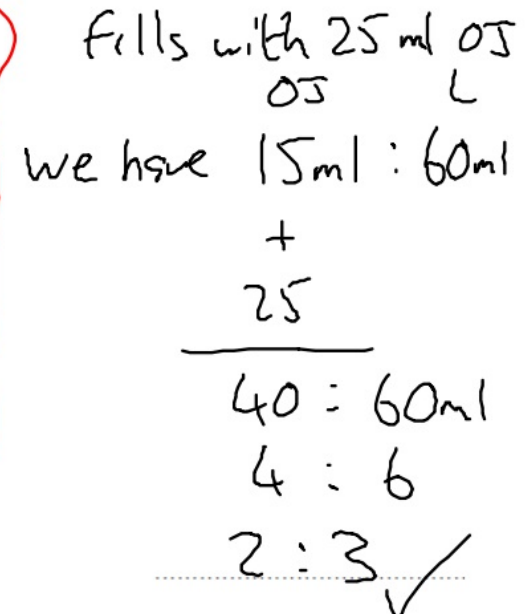 fills with 25 ml OJ
OJ L
we have 15ml : 60ml
+
25
40 : 60ml
4 : 6
2 : 3 ✓